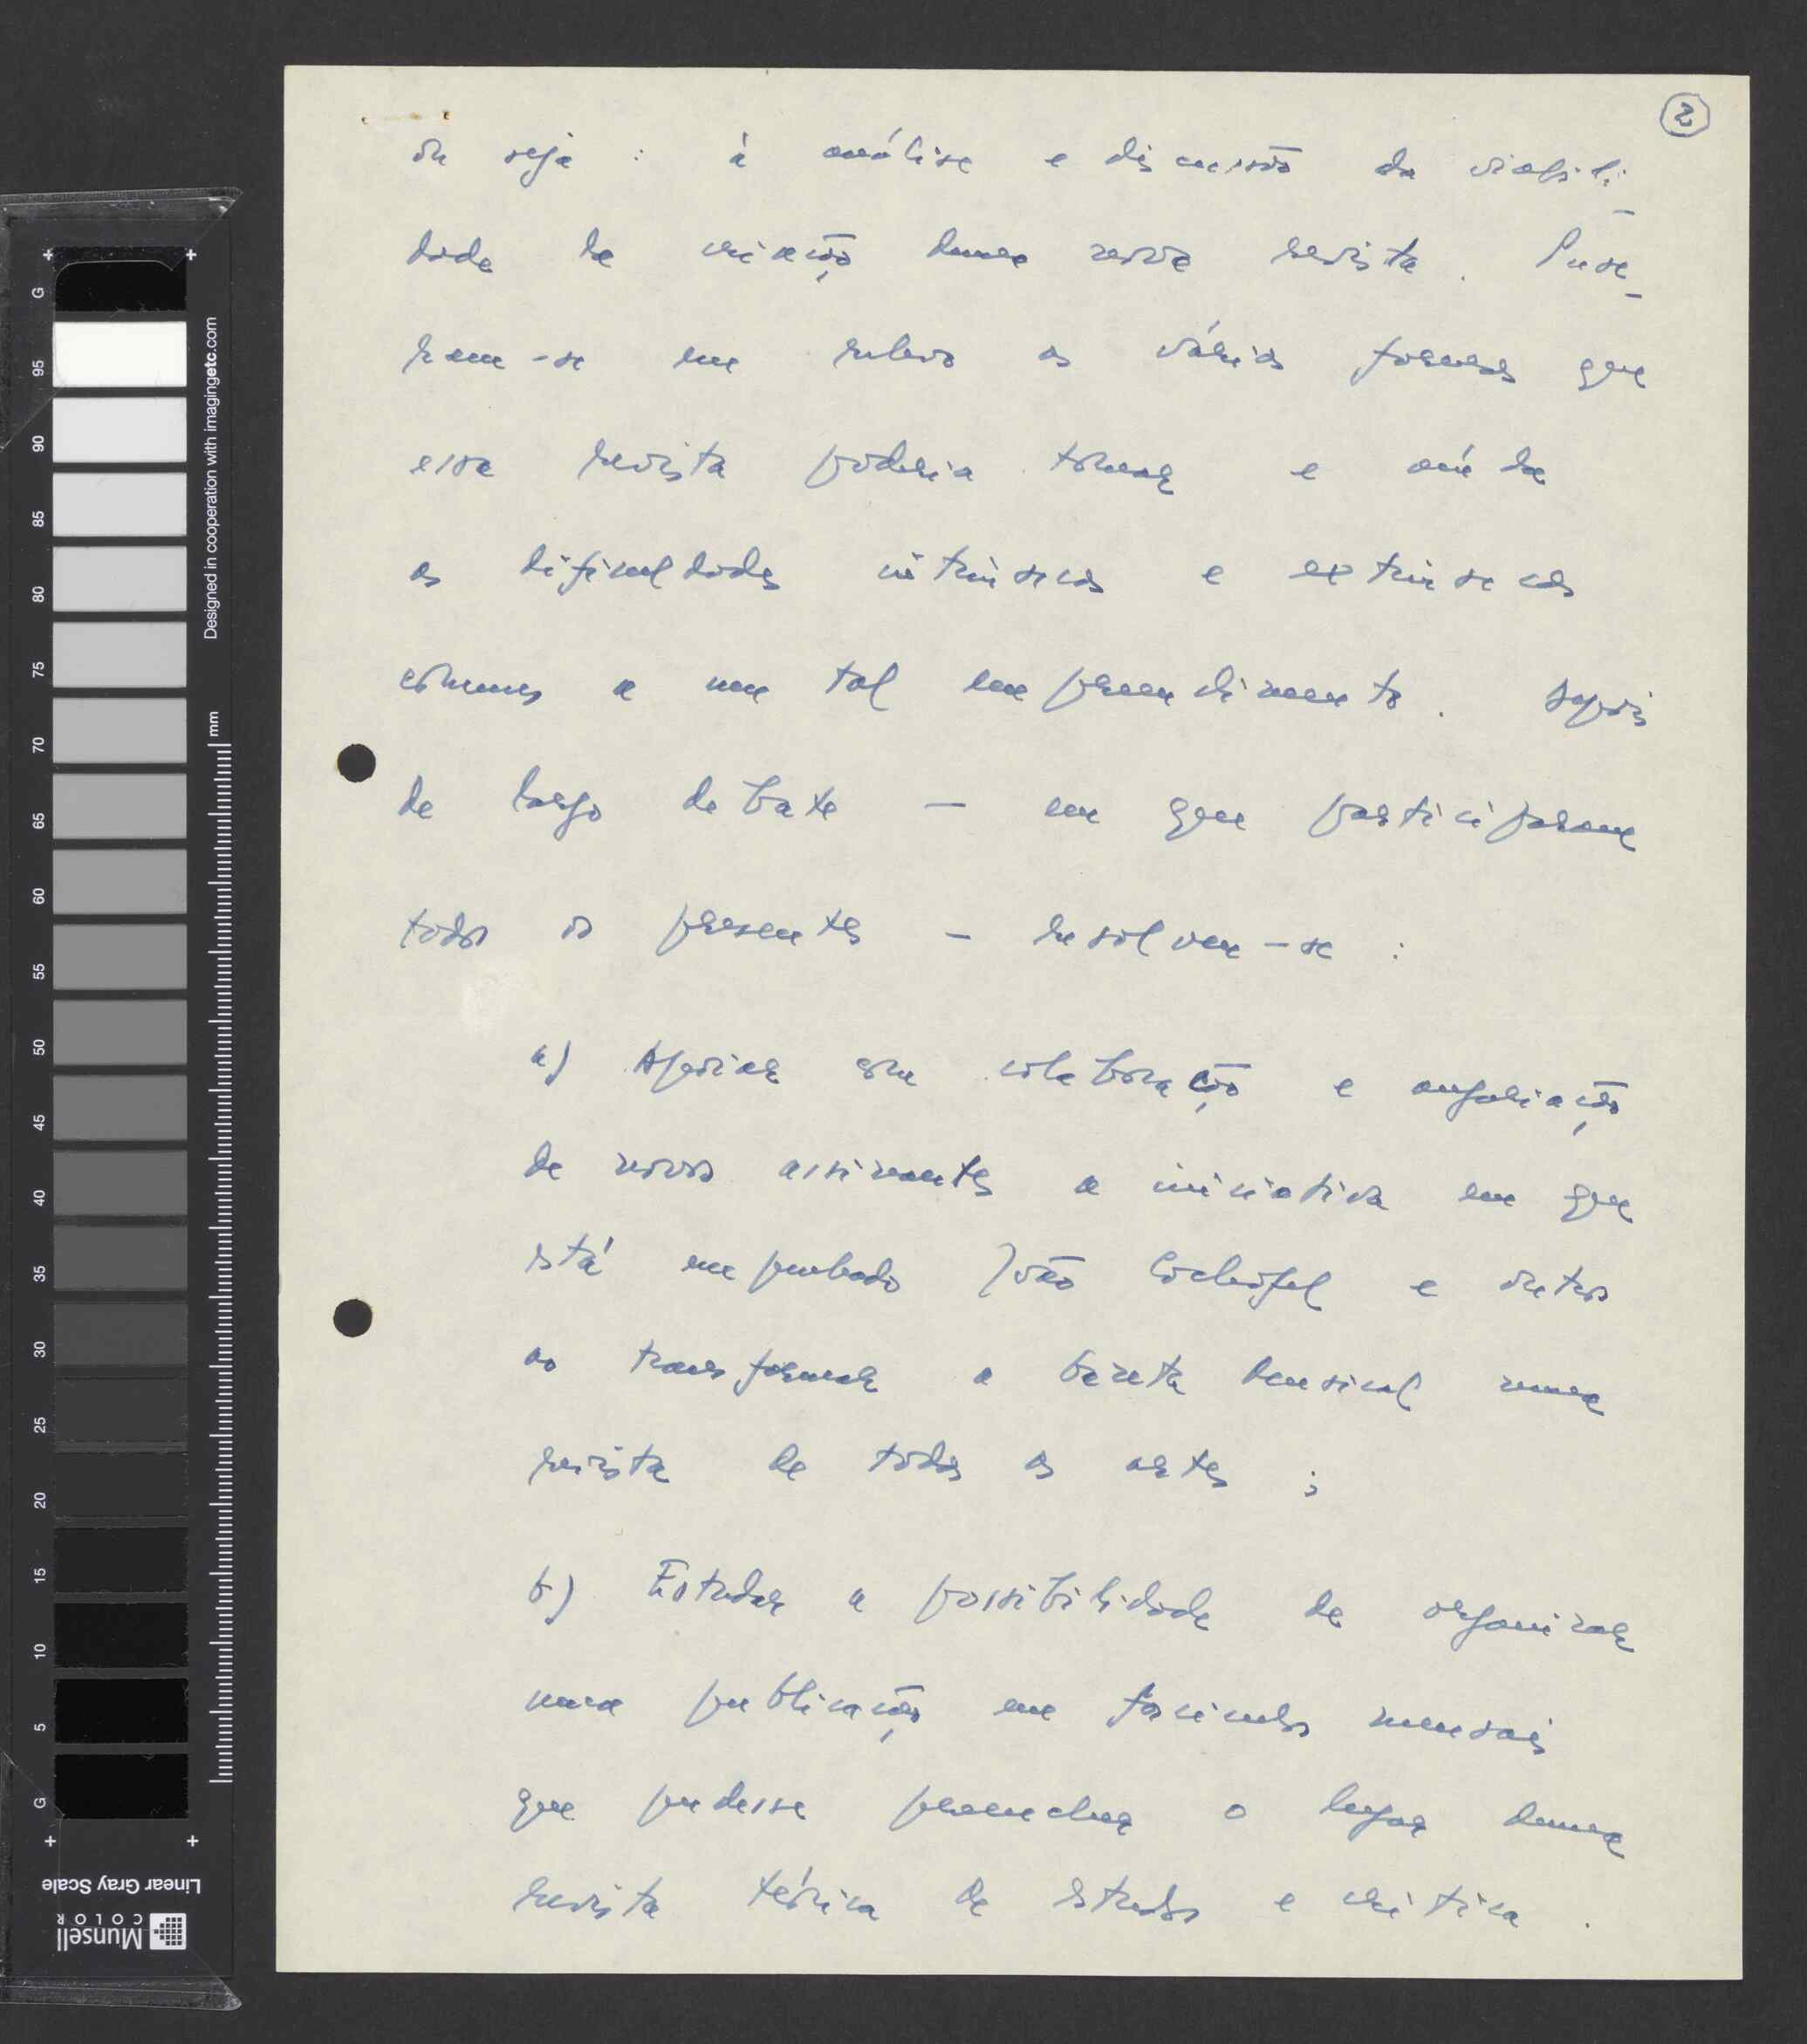 2
ou seja : à análise e discussão da viabili-
dade da criação duma nova revista. Puse-
ram-se em relevo as várias formas que
essa revista poderia tomar e ainda
as dificuldades intrínsecas e extrínsecas
comuns a um tal empreendimento. Depois
de largo debate — em que participaram
todos os presentes — resolveu-se :
a) Apoiar com colaboração e angariação
de novos assinantes a iniciativa em que
está empenhado João Cochofel e outros
ao transformar a Gazeta Musical numa
revista de todas as artes ;
b) Estudar a possibilidade de organizar
uma publicação em fascículos mensais
que pudesse preencher o lugar duma
revista teórica de estudos e crítica.
G
95
90
85
80
75
70
65
60
55
50
45
40
35
30
25
20
15
10
5
G
mm
Designed in cooperation with imagingetc.com
Linear Gray Scale
Munsell
COLOR